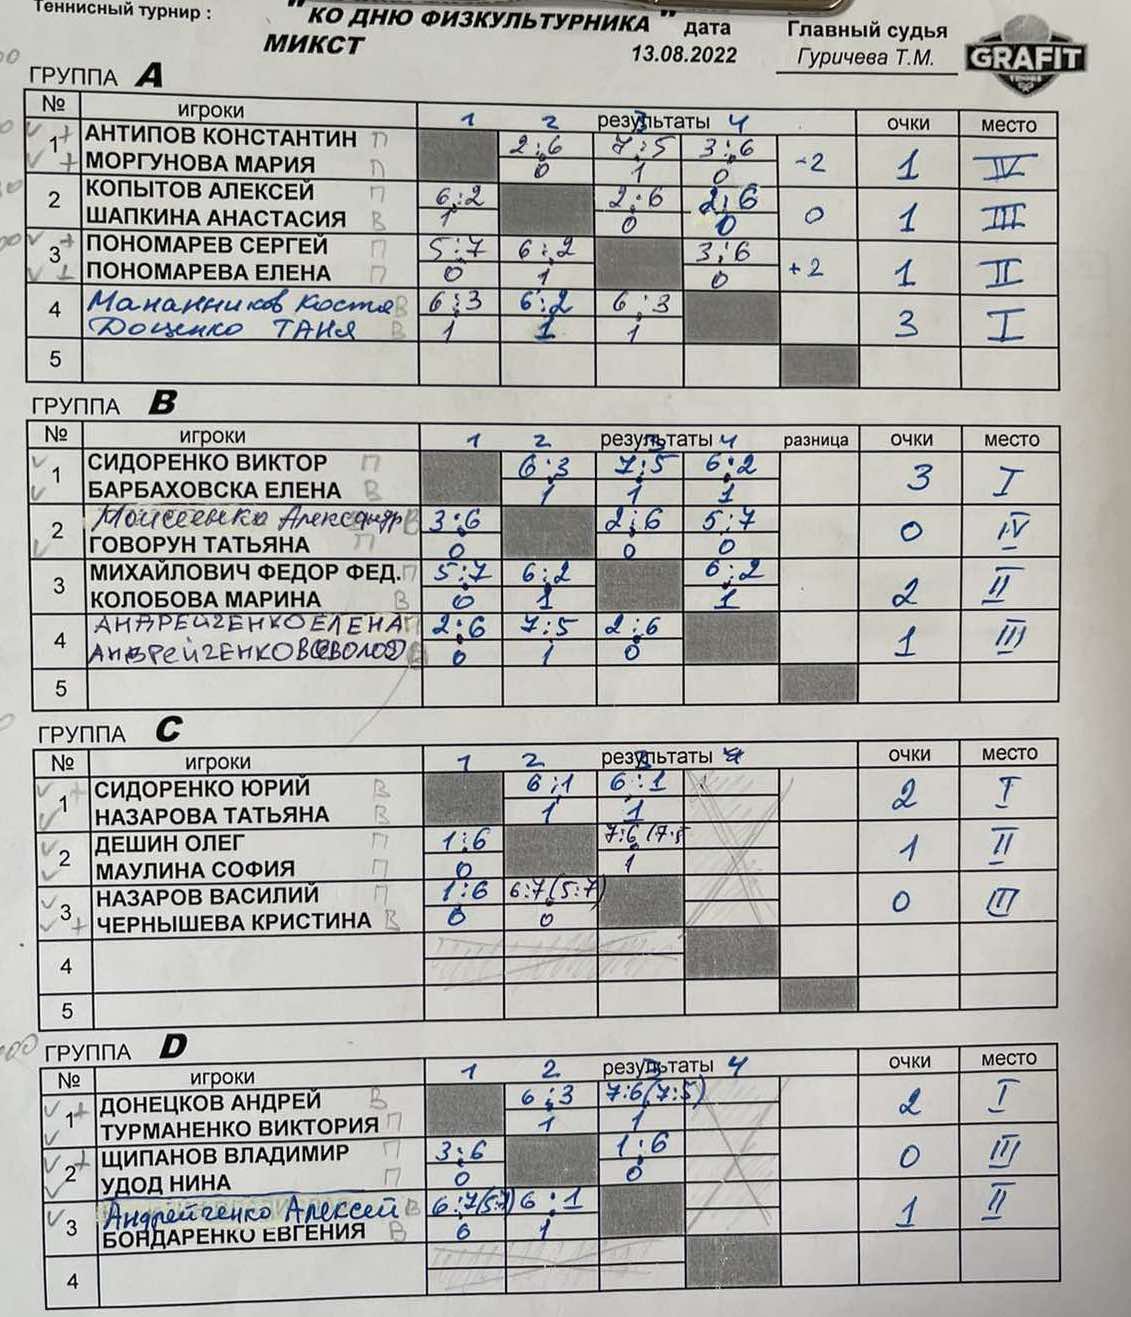 Теннисный турнир : "КО ДНЮ ФИЗКУЛЬТУРНИКА" дата Главный судья
МИКСТ 13.08.2022 Гуричева Т.М. GRAFIT
ГРУППА A
№ игроки 1 2 результаты 3 4 очки место
1 АНТИПОВ КОНСТАНТИН П 2:6 7:5 3:6
МОРГУНОВА МАРИЯ П 0 1 0 -2 1 IV
2 КОПЫТОВ АЛЕКСЕЙ П 6:2 2:6 2:6
ШАПКИНА АНАСТАСИЯ В 1 0 0 0 1 III
3 ПОНОМАРЕВ СЕРГЕЙ П 5:7 6:2 3:6
ПОНОМАРЕВА ЕЛЕНА П 0 1 0 +2 1 II
4 Мананников Костя В 6:3 6:2 6:3
Доценко ТАНЯ В 1 1 1 3 I
5
ГРУППА B
№ игроки 1 2 результаты 3 4 разница очки место
1 СИДОРЕНКО ВИКТОР П 6:3 7:5 6:2
БАРБАХОВСКА ЕЛЕНА В 1 1 1 3 I
2 Моисеенко Александр В 3:6 2:6 5:7
ГОВОРУН ТАТЬЯНА П 0 0 0 0 IV
3 МИХАЙЛОВИЧ ФЕДОР ФЕД. П 5:7 6:2 6:2
КОЛОБОВА МАРИНА В 0 1 1 2 II
4 АНДРЕЙЧЕНКО ЕЛЕНА П 2:6 7:5 2:6
АНДРЕЙЧЕНКО ВСЕВОЛОД В 0 1 0 1 III
5
ГРУППА C
№ игроки 1 2 результаты 3 4 очки место
1 СИДОРЕНКО ЮРИЙ В 6:1 6:1
НАЗАРОВА ТАТЬЯНА В 1 1 2 I
2 ДЕШИН ОЛЕГ П 1:6 7:6 (7:5
МАУЛИНА СОФИЯ П 0 1 1 II
3 НАЗАРОВ ВАСИЛИЙ П 1:6 6:7(5:7)
ЧЕРНЫШЕВА КРИСТИНА В 0 0 0 III
4
5
ГРУППА D
№ игроки 1 2 результаты 3 4 очки место
1 ДОНЕЦКОВ АНДРЕЙ В 6:3 7:6(7:5)
ТУРМАНЕНКО ВИКТОРИЯ П 1 1 2 I
2 ЩИПАНОВ ВЛАДИМИР П 3:6 1:6
УДОД НИНА П 0 0 0 III
3 Андрейченко Алексей В 6:7(5:7) 6:1
БОНДАРЕНКО ЕВГЕНИЯ В 0 1 1 II
4